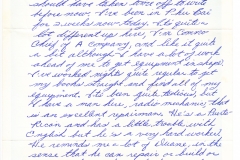 should have taken time off to write
before now. I've been in Plei
for 2 weeks now today. It's quite a
lot different up here, I'm Commo
Chief for A company, and like it quite
a bit although I have a lot of work
ahead of me to get equipment in shape.
I've worked nights quite regular to get
my books straight and find all of my
equipment. It's been quite tedious, but
I have a man here, radio mechanic, that
is an excellent repairman. He's a Puerto
Rican and has a little trouble with
English but he is a very hard worker.
He reminds me a lot of Duane, in the
sense that he can repair or build on